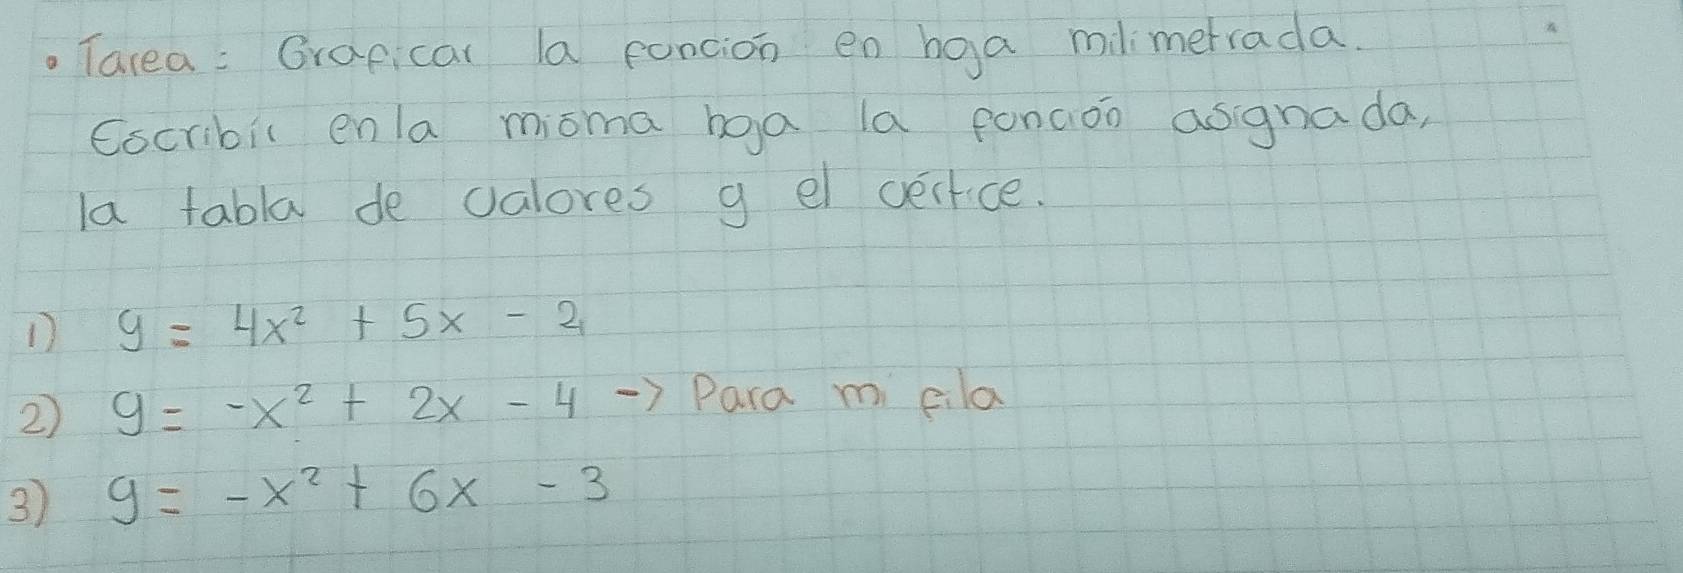 • Tarea: Graficar la función en hoja milimetrada.
Escribir en la misma hoja la función asignada,
la tabla de valores y el vértice.
1) y = 4x² + 5x - 2
2) y = -x² + 2x - 4 -> Para mi fila
3) y = -x² + 6x - 3